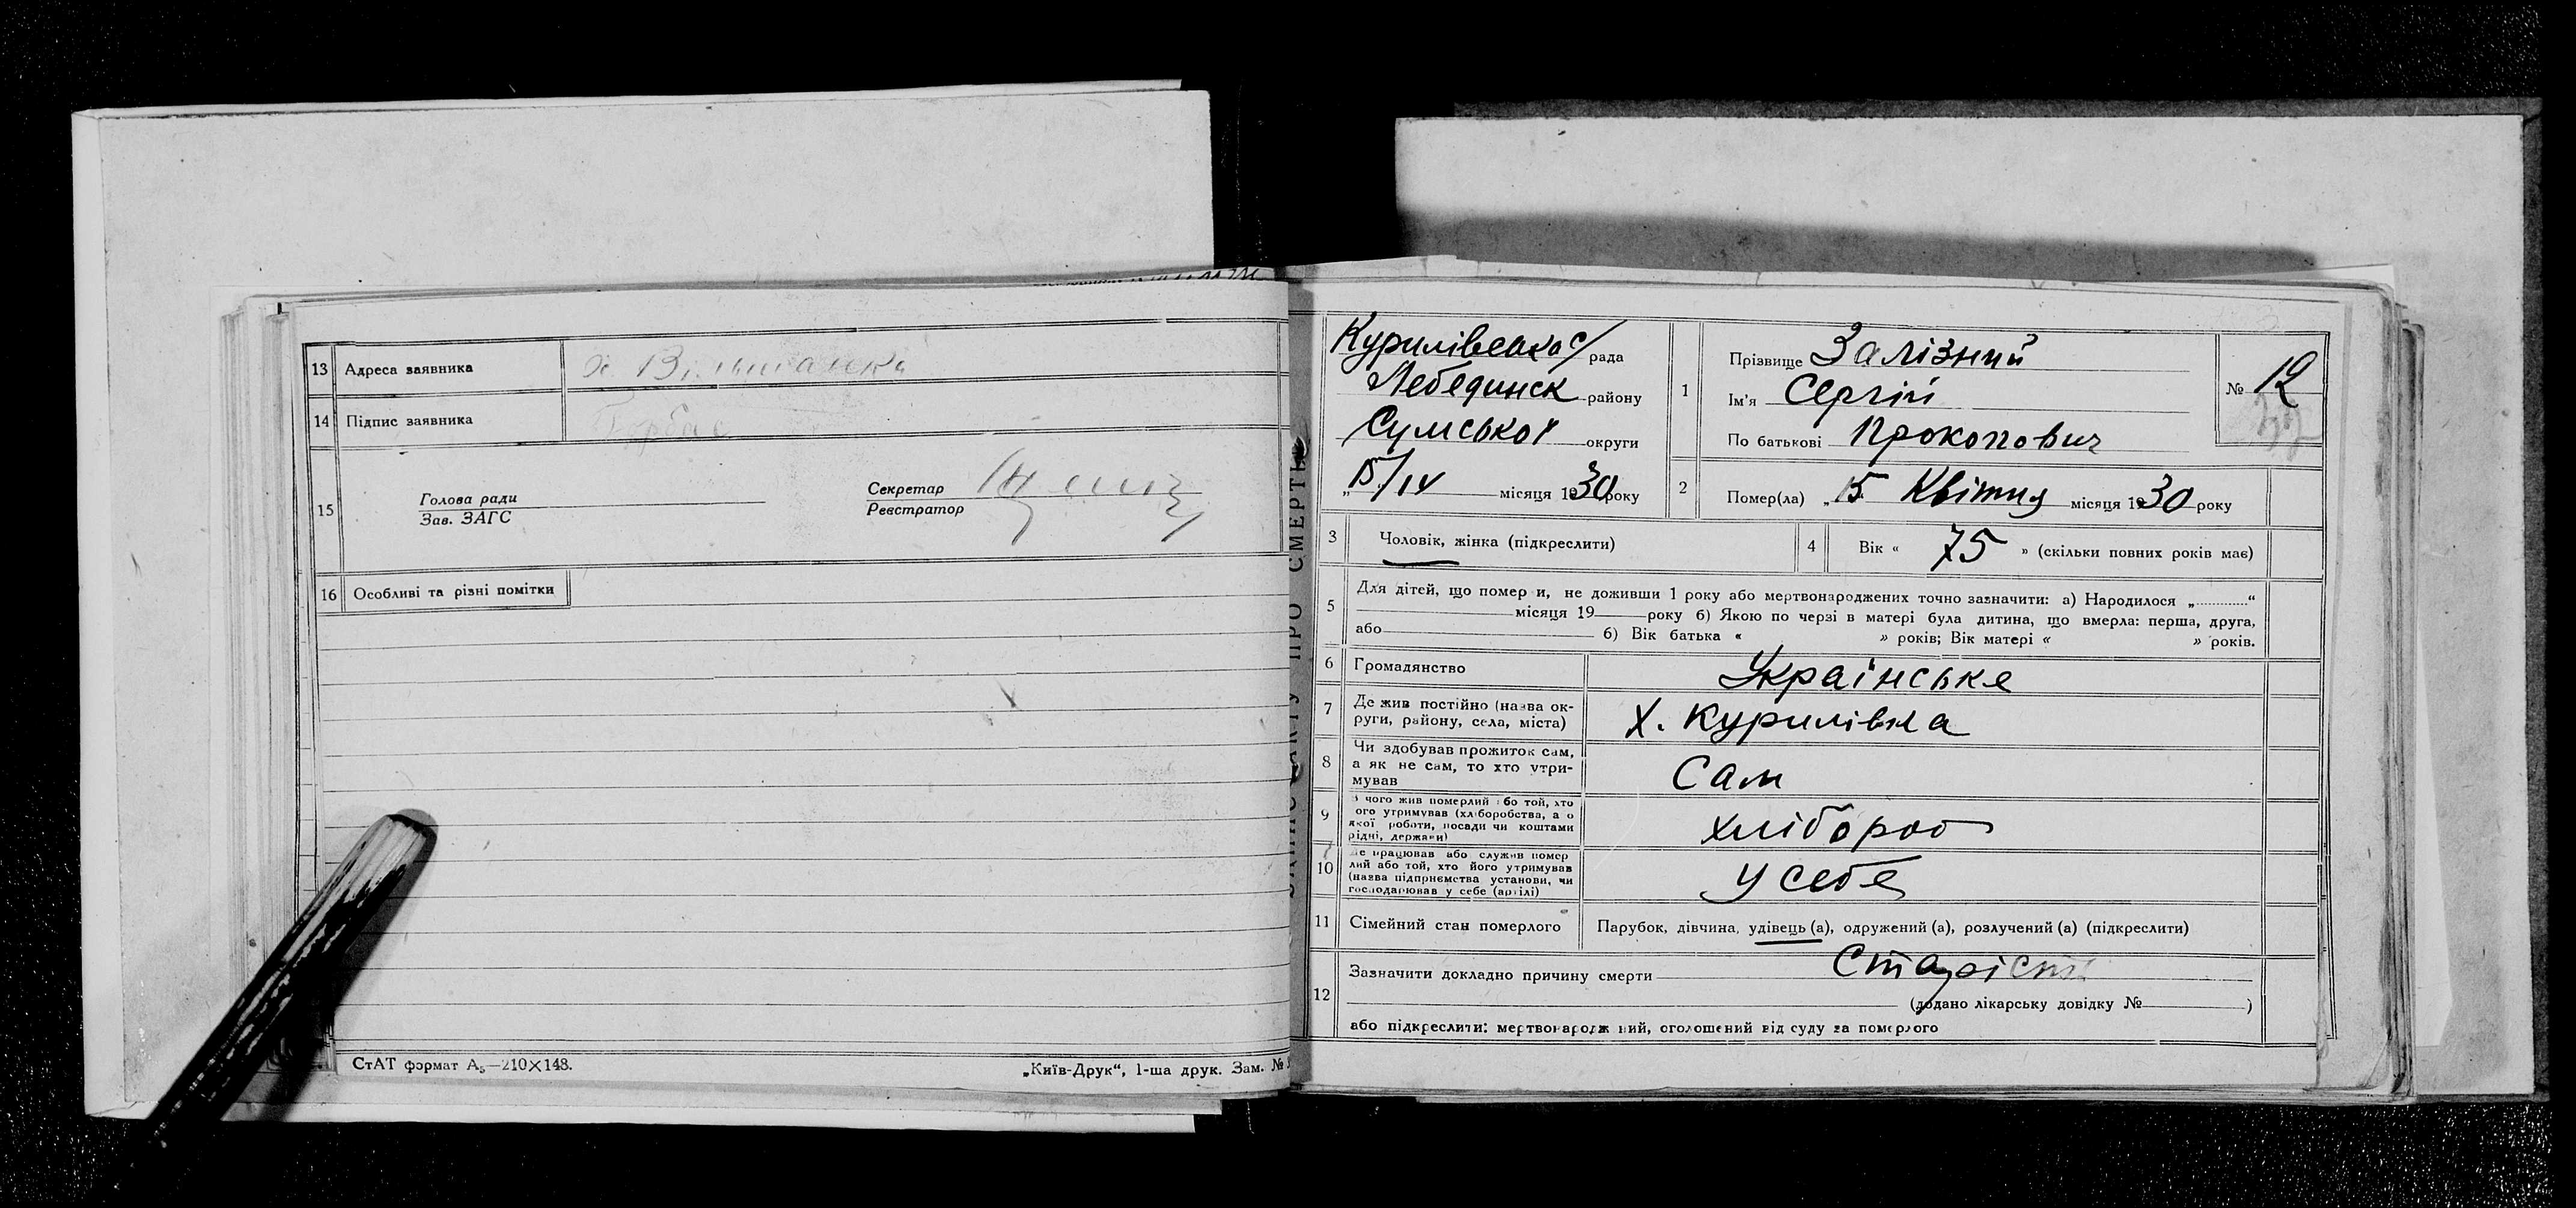 13 Адреса заявника х Вільшанка
14 Підпис заявника Горбас
15 Голова ради
Зав. ЗАГС
Секретар
Реєстратор
16 Особливі та різні помітки
СтАТ формат А₅—210×148.
„Київ-Друк“, 1-ша друк. Зам. №
ПРО СМЕРТЬ
Курилівська с/рада
Лебединск району
Сумської округи
„15/IV місяця 1930 року
1 Прізвище Залізний
Ім'я Сергій
По батькові Прокопович
№ 12
2 Помер(ла) „15 Квітня місяця 1930 року
3 Чоловік, жінка (підкреслити)
4 Вік « 75 » (скільки повних років має)
5 Для дітей, що помер и, не доживши 1 року або мертвонароджених точно зазначити: а) Народилося „ “
місяця 19 року б) Якою по черзі в матері була дитина, що вмерла: перша, друга,
або б) Вік батька « » років; Вік матері « » років.
6 Громадянство Українське
7 Де жив постійно (назва ок-
руги, району, села, міста) х. Курилівка
8 Чи здобував прожиток сам,
а як не сам, то хто утри-
мував Сам
9 З чого жив померлий або той, хто
ого утримував (хліборобства, а о
якої роботи, посади чи коштами
рідні, держави) хлібороб
10 Де працював або служив помер
лий або той, хто його утримував
(назва підприємства установи, чи
господарював у себе (артілі) у себе
11 Сімейний стан померлого Парубок, дівчина, удівець (а), одружений (а), розлучений (а) (підкреслити)
12 Зазначити докладно причину смерти Старість
(додано лікарську довідку № )
або підкреслити: мертвонародж ний, оголошений від суду за померлого